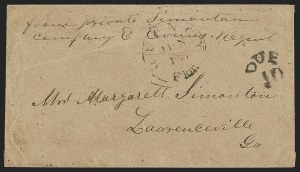 from private Simonton
Company E
DUE
10
Mrs Margarett Simonton
Lawrenceville
Ga